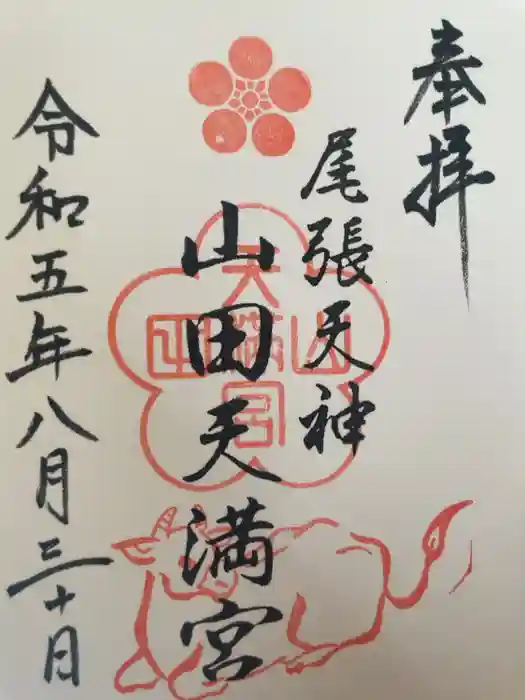 奉拝
尾張天神
山田天満宮
山田天満宮
令和五年八月三十日